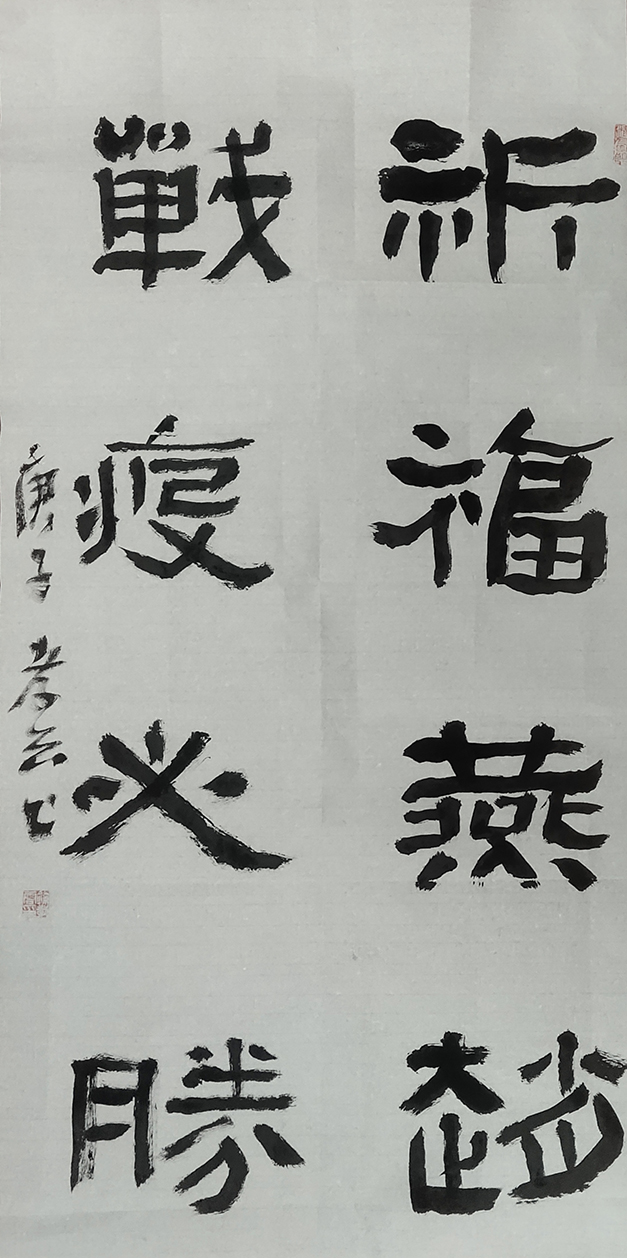 祈福燕趙
戰疫必勝
庚子 孝云书